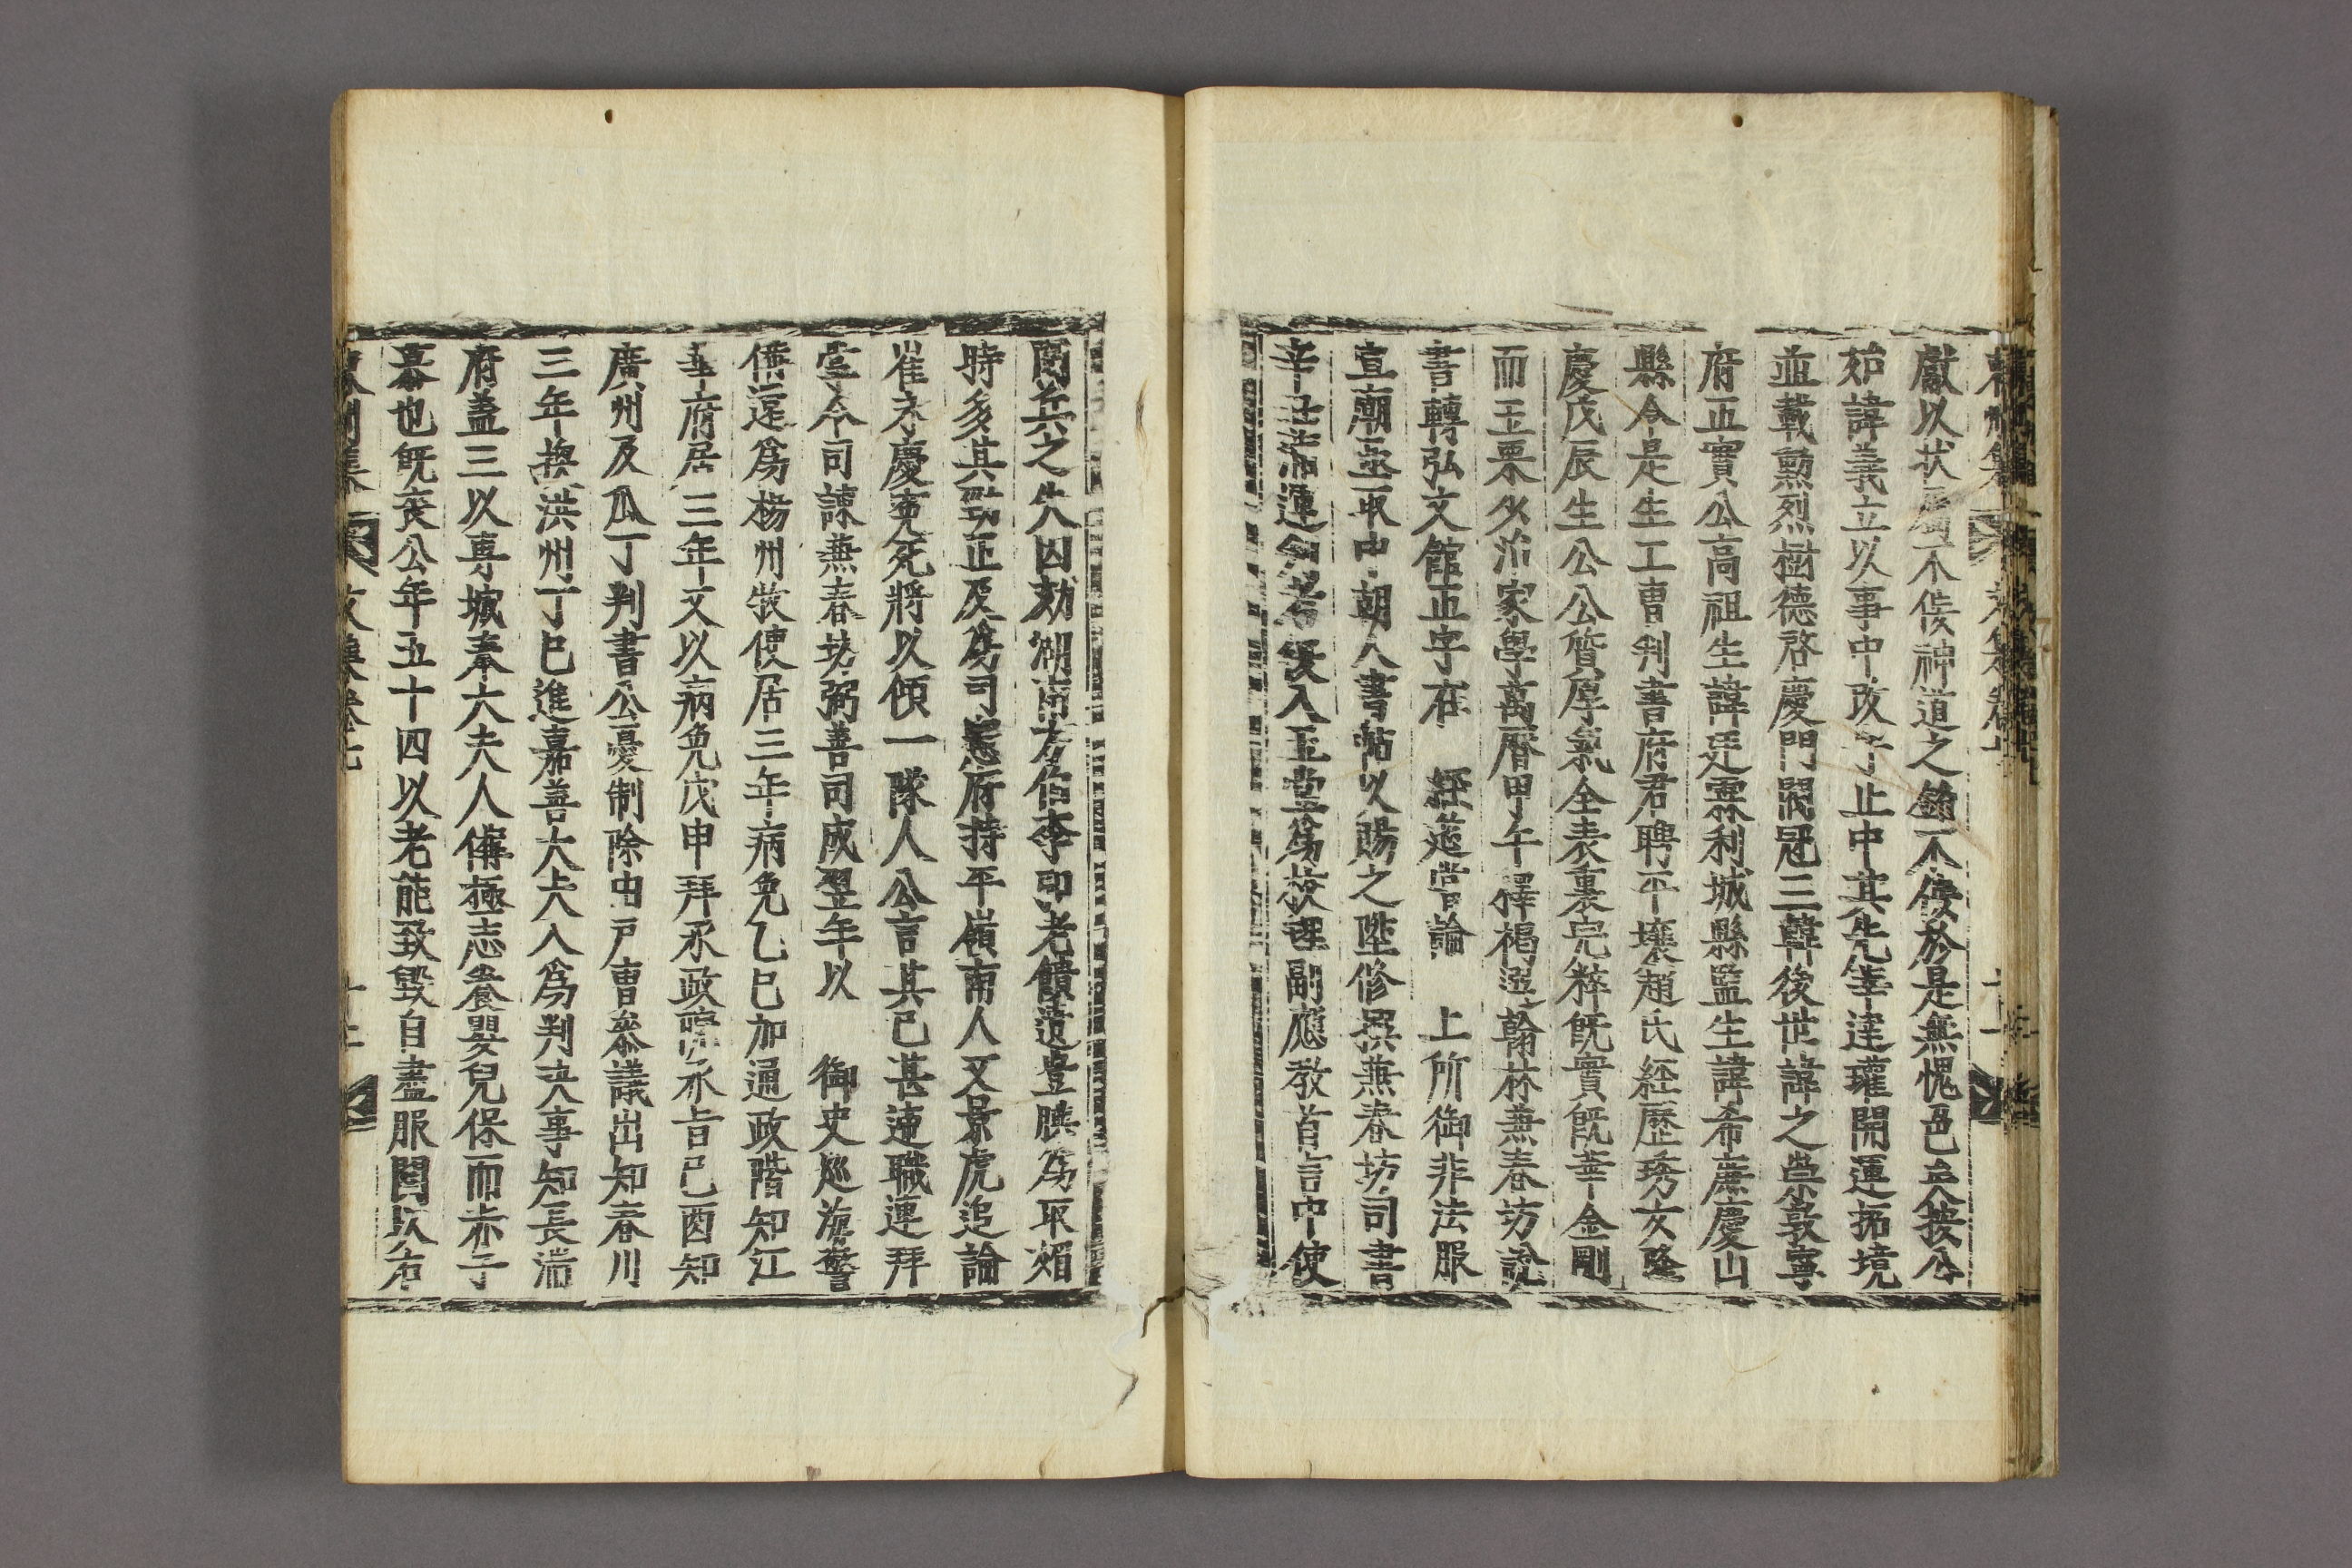 獻以狀屬不佞神道之銘不佞於是無愧色矣按公
諱義立以事中改 止中其先筆達瓘開運拓境
並載勳烈樹德啓慶門閥冠三韓後世諱之崇敦寧
府正實公高祖生諱廷霖利城縣監生諱希廉慶山
縣令是生工曹判書府君聘平壤趙氏經歷琇女隆
慶戊辰生公公質厚氣全表裏完粹旣實旣華金剛
而玉栗少治家學萬曆甲午釋褐選翰林兼春坊說
書轉弘文館正字在 經筵嘗論 上所御非法服
宣廟亟取中朝人書帖以賜之陞修撰兼春坊司書
辛丑 運 入玉堂爲校理副應敎首言中使
閱兵之失因劾湖南方伯李 老饋遺豊腆爲取媚
時多其 正及爲司憲府持平嶺南人文景虎追論
崔永慶寃死將以傾一隊人公言其已甚違職運拜
堂令司諫兼春坊弼善司成翌年以 御史巡 
還爲楊州牧使居三年病免乙巳加通政階知江
華府居三年又以病免戊申拜承政院承旨己酉知
廣州及瓜丁判書公憂制除由戶曹參議出知春川
三年換洪州丁巳進嘉善大夫入爲判決事知長湍
府蓋三以專城奉大夫人備極志養嬰兒保而赤子
慕也旣喪公年五十四以老能致毁自盡服闋以右
集 文集卷七